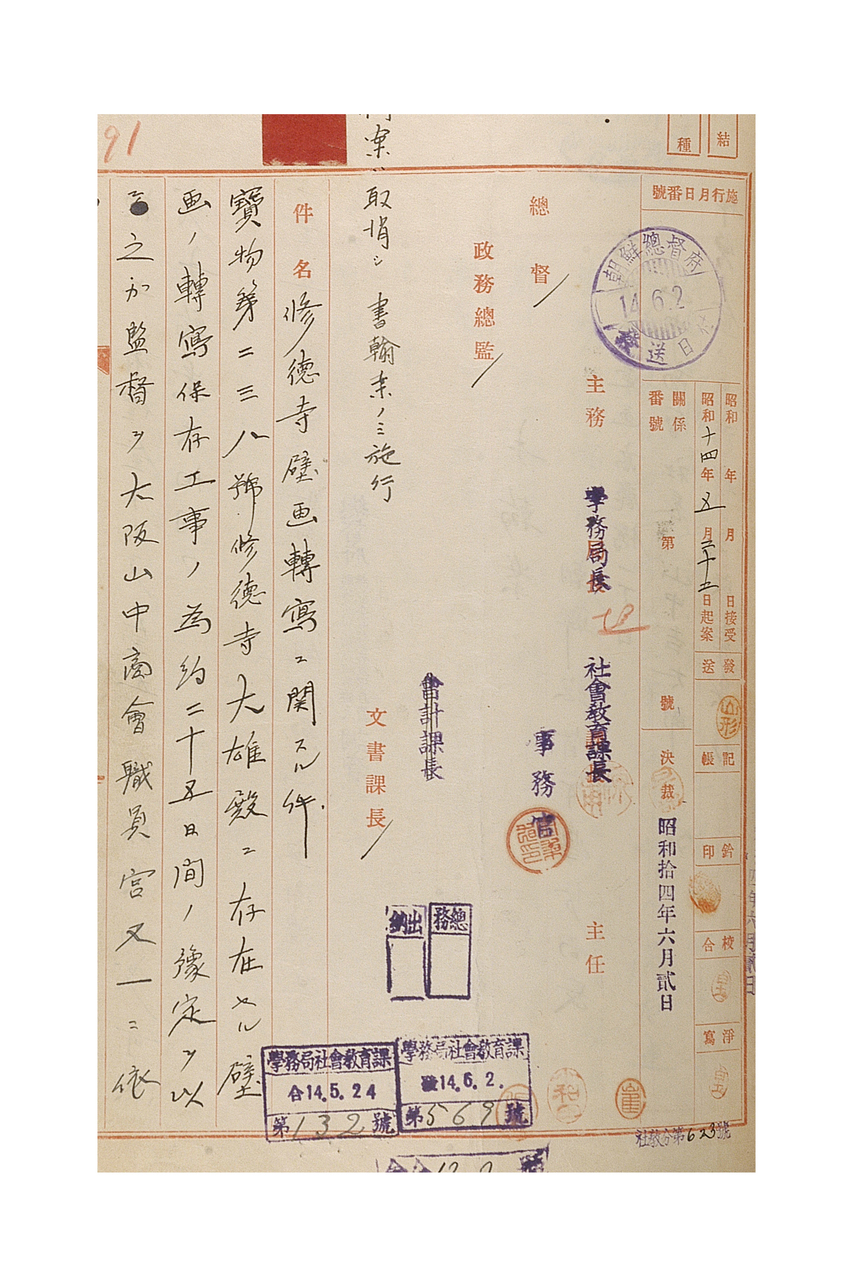 結
種
施行月日番號
昭和 年 月 日接受
昭和十四年五月三十五日起案
發送
記帳
鈐印
校合
淨寫
山形
關係番號
第 號
決裁
昭和拾四年六月貳日
朝鮮總督府
14.6.2
發送
主務
學務局長
社會教育課長
事務官
主任
崔
總督
政務總監
會計課長
文書課長
總務
出納
案ハ取消シ書翰案ノミ施行
件名
修德寺壁画轉寫ニ関スル件
寶物第二三八號修德寺大雄殿ニ存在セル壁
画ノ轉寫保存工事ノ為約二十五日間ノ豫定ヲ以
之カ監督ヲ大阪山中商會職員宮又一ニ依
學務局社會教育課
發14.6.2.
第569號
學務局社會教育課
合14.5.24
第132號
社敎合第623號
91